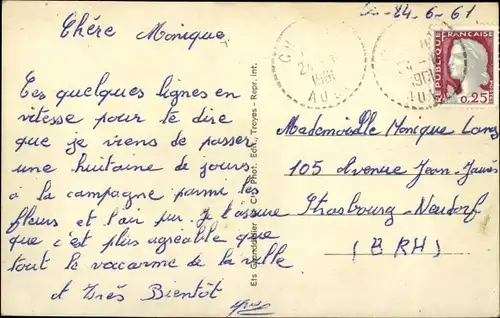 24-6-61
Chère Monique,
Ces quelques lignes en
vitesse pour te dire
que je viens de passer
une huitaine de jours
à la campagne parmi les
fleurs et l'air pur. Je t'assure
que c'est plus agréable que
tout le vacarme de la ville
et Très Bientôt
Ets Grandidier C.A.P. Phot. Edit., Troyes - Repr. int.
1961
AUBE
1961
AUBE
REPUBLIQUE FRANÇAISE
0,25
Mademoiselle Monique
105 Avenue Jean-Jaurès
Strasbourg-Neudorf
(B RH)